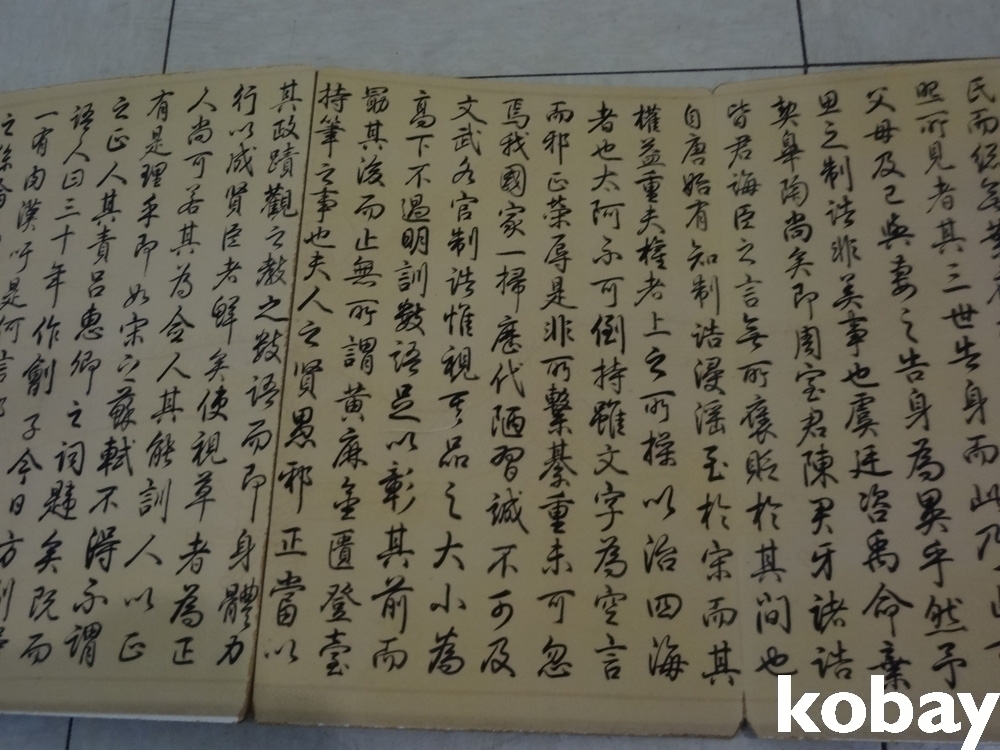 民而
照所見者其三世告身而此乃
父母及己與妻之告身為異乎然予
思之制誥非美事也虞廷咨禹命棄
契皋陶尚矣即周室君陳君牙諸誥
皆君誨臣之言無所褒貶於其間也
自唐始有知制誥浸淫至於宋而其
權益重夫權者上之所操以治四海
者也太阿不可倒持雖文字為空言
而邪正榮辱是非所繫綦重未可忽
焉我國家一掃歷代陋習誠不可及
文武各官制誥惟視其品之大小為
高下不過明訓數語足以彰其前而
勗其後而止無所謂黃麻金匱登臺
持筆之事也夫人之賢愚邪正當以
其政蹟觀之教之數語而即身體力
行以成賢臣者鮮矣使視草者為正
人尚可若其為僉人其能訓人以正
有是理乎即如宋之蘇軾不得不謂
之正人其責呂惠卿之詞韙矣既而
語人曰三十年作劊子今日方剮
一有肉漢吁是何言耶
kobay